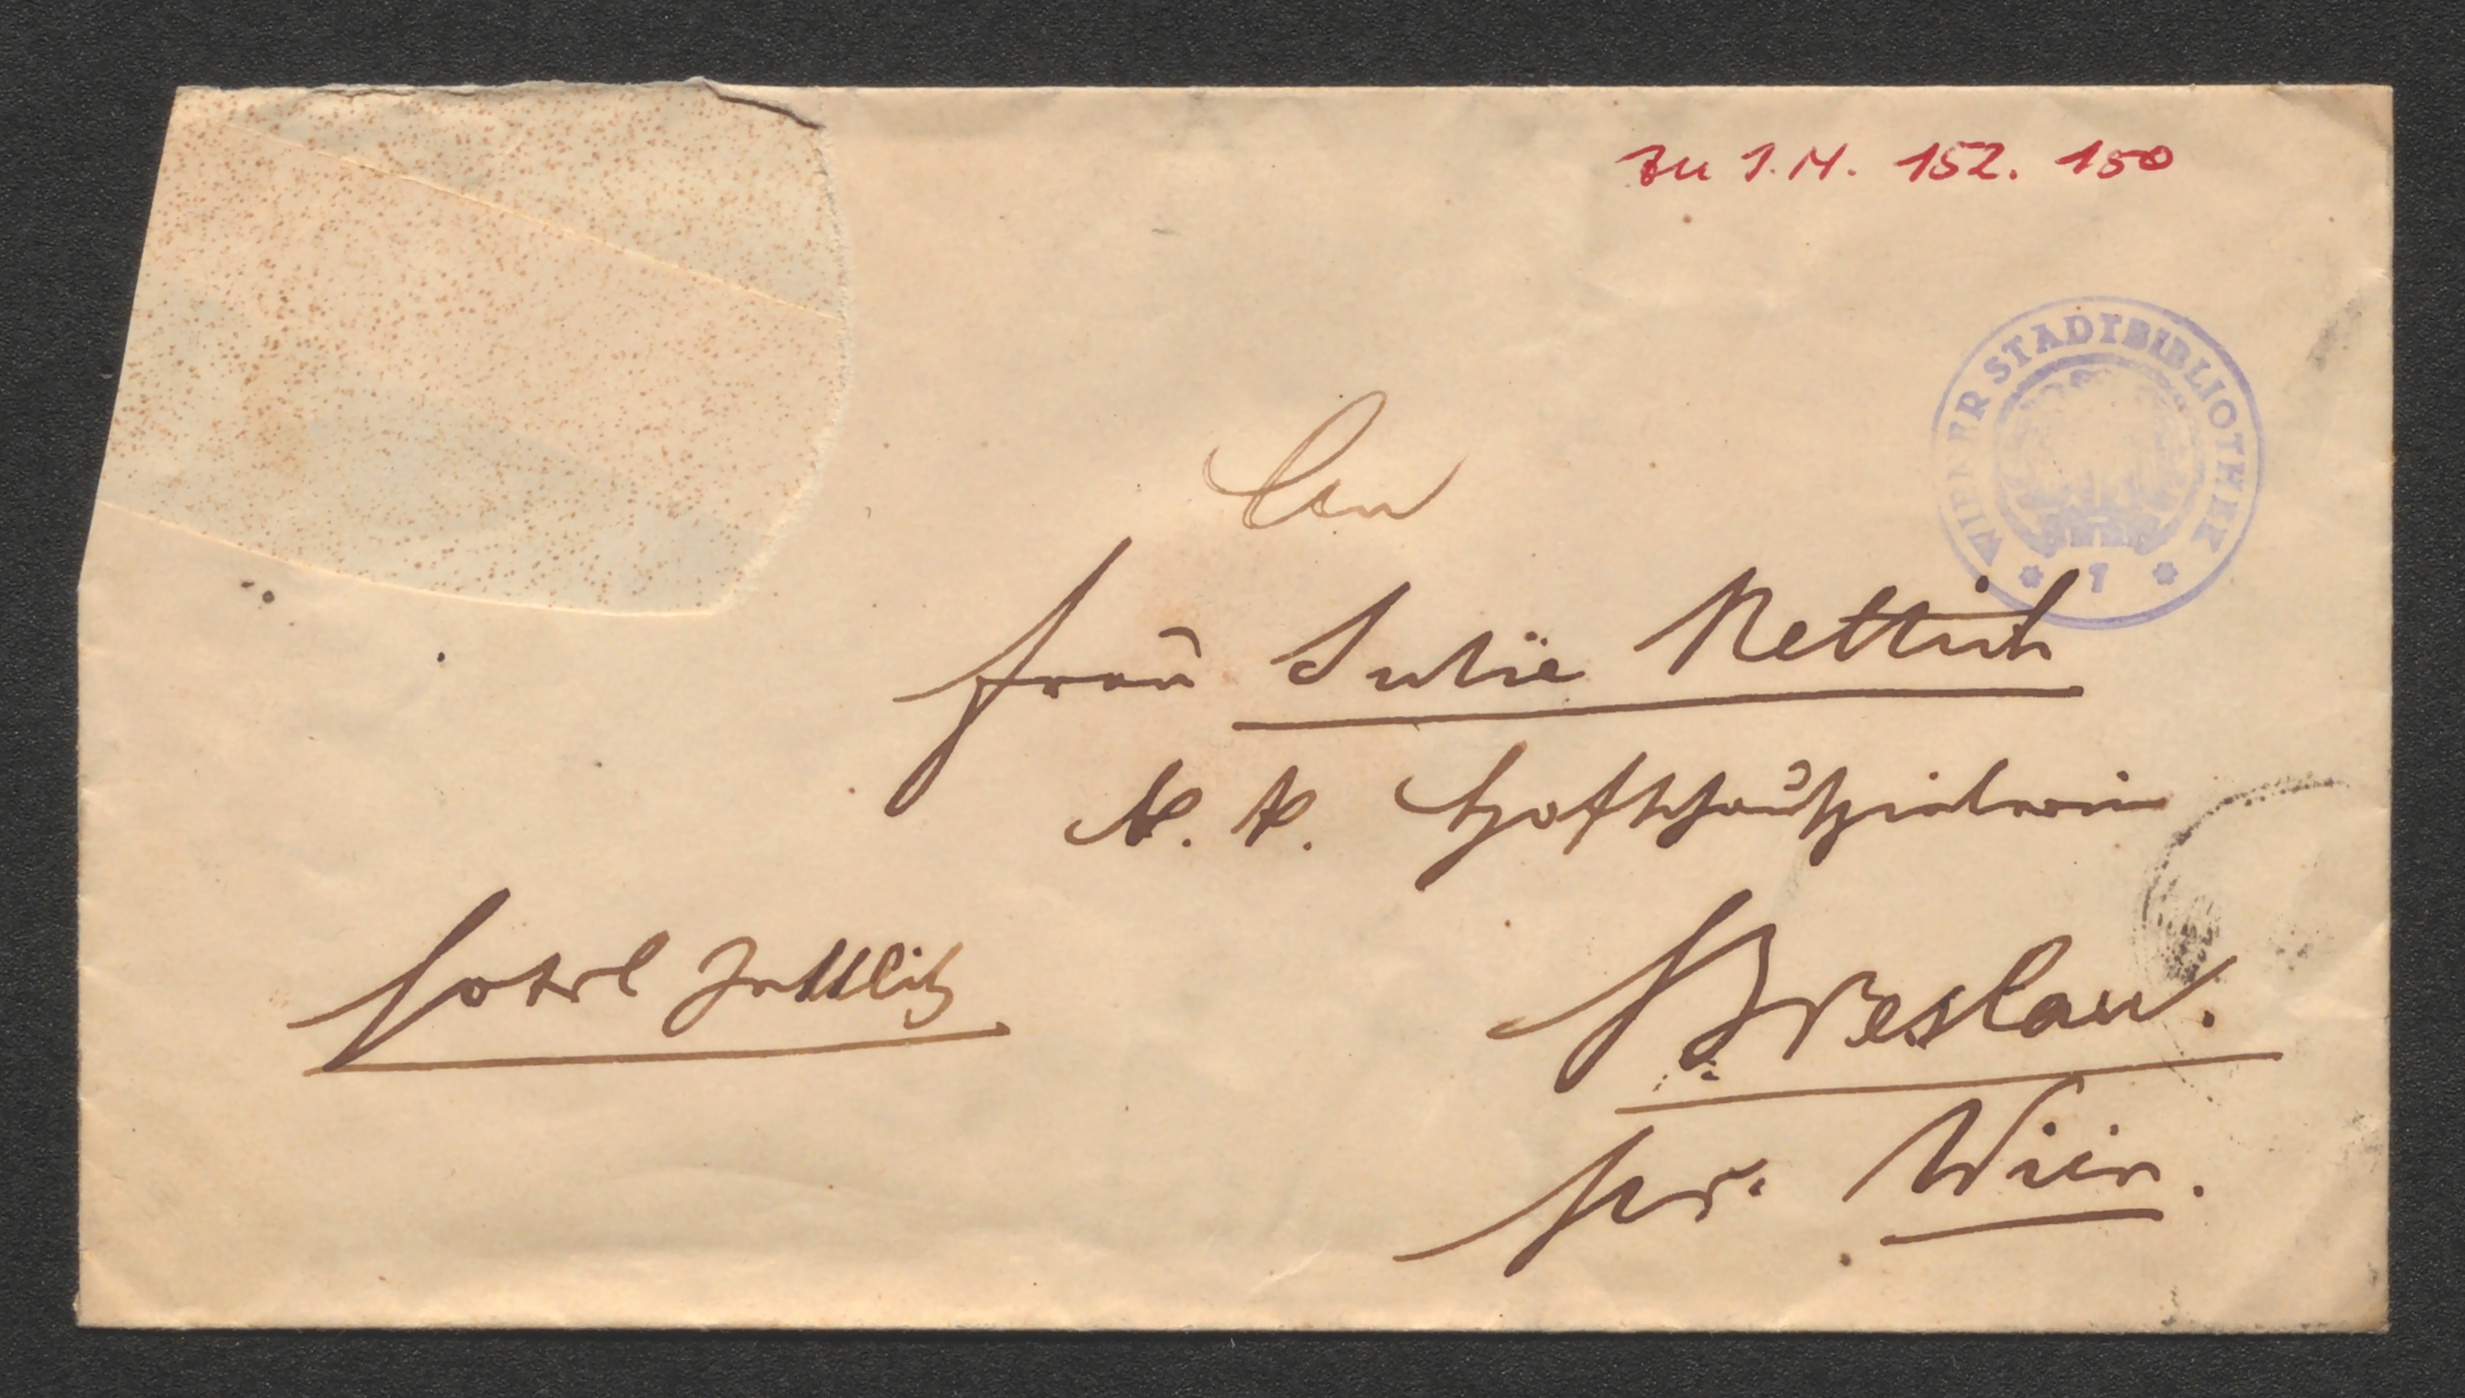 Zu I.N. 152.150
WIENER STADTBIBLIOTHEK
* 7 *
An
Frau Julie Rettich
K. K. Hofschauspielerin
Hotel Zettlitz
Breslau.
pr. Wien.